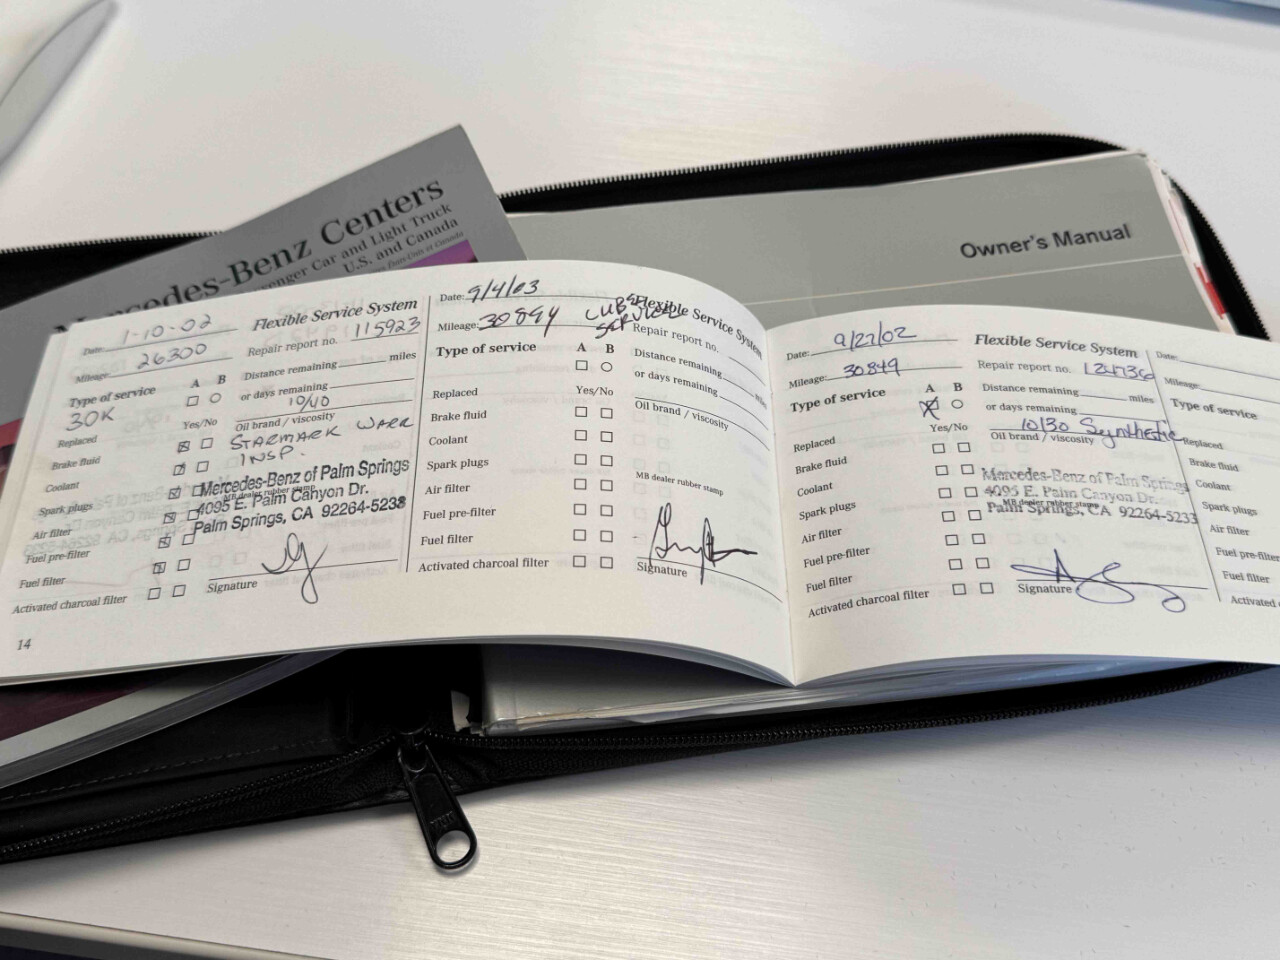 Mercedes-Benz Centers
Passenger Car and Light Truck
U.S. and Canada
Owner's Manual
Date: 1-10-02
Flexible Service System
Mileage: 26300
Repair report no. 115923
Type of service A B
30K
Distance remaining miles
or days remaining
10/40
Replaced Yes/No
Oil brand / viscosity
STARMARK WARR
INSP.
Brake fluid
Coolant
Spark plugs
Air filter
Fuel pre-filter
Fuel filter
Activated charcoal filter
Mercedes-Benz of Palm Springs
MB dealer rubber stamp
4095 E. Palm Canyon Dr.
Palm Springs, CA 92264-5238
Signature
14
Date: 9/4/03
Flexible Service System
Mileage: 30894
LUBE
SERVICE
Repair report no.
Type of service A B
Distance remaining miles
or days remaining
Replaced Yes/No
Oil brand / viscosity
Brake fluid
Coolant
Spark plugs
MB dealer rubber stamp
Air filter
Fuel pre-filter
Fuel filter
Activated charcoal filter
Signature
Date: 9/27/02
Flexible Service System
Mileage: 30849
Repair report no.
Type of service A B
Distance remaining miles
or days remaining
10/30 Synthetic
Replaced Yes/No
Oil brand / viscosity
Brake fluid
Coolant
Spark plugs
Air filter
Fuel pre-filter
Fuel filter
Activated charcoal filter
Mercedes-Benz of Palm Springs
4095 E. Palm Canyon Dr.
MB dealer rubber stamp
Palm Springs, CA 92264-5233
Signature
Date:
Mileage:
Type of service
Replaced
Brake fluid
Coolant
Spark plugs
Air filter
Fuel pre-filter
Fuel filter
Activated